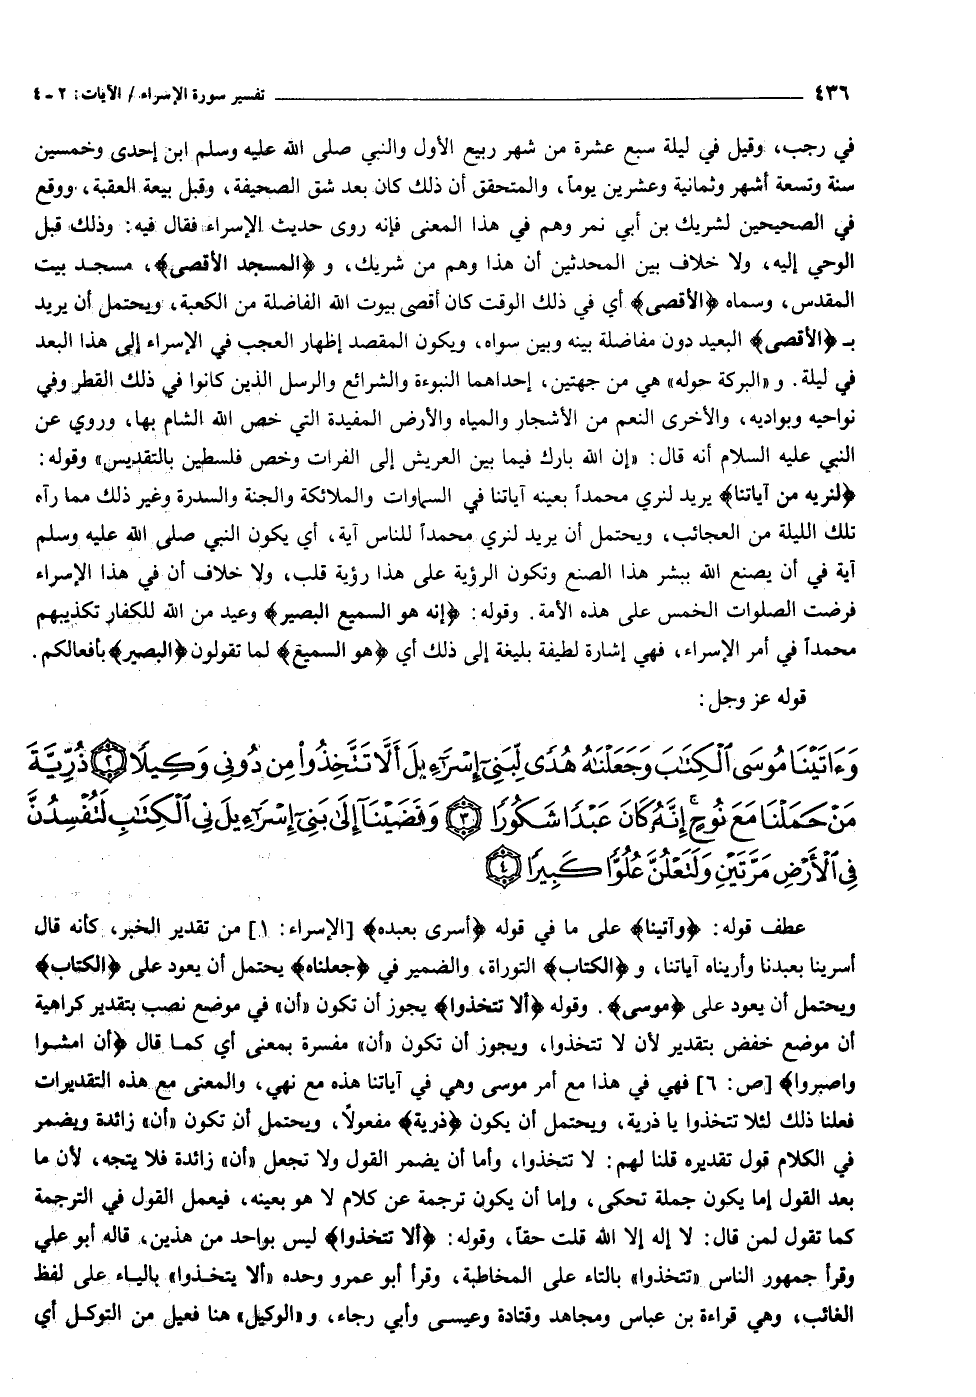 ٤٣٦ تفسير سورة الإسراء / الآيات: ٢ - ٤
في رجب، وقيل في ليلة سبع عشرة من شهر ربيع الأول والنبي صلى الله عليه وسلم ابن إحدى وخمسين
سنة وتسعة أشهر وثمانية وعشرين يوماً، والمتحقق أن ذلك كان بعد شق الصحيفة، وقبل بيعة العقبة، ووقع
في الصحيحين لشريك بن أبي نمر وهم في هذا المعنى فإنه روى حديث الإسراء فقال فيه: وذلك قبل
الوحي إليه، ولا خلاف بين المحدثين أن هذا وهم من شريك، و ﴿المسجد الأقصى﴾، مسجد بيت
المقدس، وسماه ﴿الأقصى﴾ أي في ذلك الوقت كان أقصى بيوت الله الفاضلة من الكعبة، ويحتمل أن يريد
بـ ﴿الأقصى﴾ البعيد دون مفاضلة بينه وبين سواه، ويكون المقصد إظهار العجب في الإسراء إلى هذا البعد
في ليلة. و «البركة حوله» هي من جهتين، إحداهما النبوءة والشرائع والرسل الذين كانوا في ذلك القطر وفي
نواحيه وبواديه، والأخرى النعم من الأشجار والمياه والأرض المفيدة التي خص الله الشام بها، وروي عن
النبي عليه السلام أنه قال: «إن الله بارك فيما بين العريش إلى الفرات وخص فلسطين بالتقديس» وقوله:
﴿لنريه من آياتنا﴾ يريد لنري محمداً بعينه آياتنا في السماوات والملائكة والجنة والسدرة وغير ذلك مما رآه
تلك الليلة من العجائب، ويحتمل أن يريد لنري محمداً للناس آية، أي يكون النبي صلى الله عليه وسلم
آية في أن يصنع الله ببشر هذا الصنع وتكون الرؤية على هذا رؤية قلب، ولا خلاف أن في هذا الإسراء
فرضت الصلوات الخمس على هذه الأمة. وقوله: ﴿إنه هو السميع البصير﴾ وعيد من الله للكفار تكذيبهم
محمداً في أمر الإسراء، فهي إشارة لطيفة بليغة إلى ذلك أي ﴿هو السميع﴾ لما تقولون ﴿البصير﴾ بأفعالكم.
قوله عز وجل:
وَءَاتَيْنَا مُوسَى ٱلْكِتَٰبَ وَجَعَلْنَٰهُ هُدًى لِّبَنِىٓ إِسْرَٰٓءِيلَ أَلَّا تَتَّخِذُوا۟ مِن دُونِى وَكِيلًا ﴿٢﴾ ذُرِّيَّةَ
مَنْ حَمَلْنَا مَعَ نُوحٍ ۚ إِنَّهُۥ كَانَ عَبْدًا شَكُورًا ﴿٣﴾ وَقَضَيْنَآ إِلَىٰ بَنِىٓ إِسْرَٰٓءِيلَ فِى ٱلْكِتَٰبِ لَتُفْسِدُنَّ
فِى ٱلْأَرْضِ مَرَّتَيْنِ وَلَتَعْلُنَّ عُلُوًّا كَبِيرًا ﴿٤﴾
عطف قوله: ﴿وآتينا﴾ على ما في قوله ﴿أسرى بعبده﴾ [الإسراء: ١] من تقدير الخبر، كأنه قال
أسرينا بعبدنا وأريناه آياتنا، و ﴿الكتاب﴾ التوراة، والضمير في ﴿جعلناه﴾ يحتمل أن يعود على ﴿الكتاب﴾
ويحتمل أن يعود على ﴿موسى﴾. وقوله ﴿ألا تتخذوا﴾ يجوز أن تكون «أن» في موضع نصب بتقدير كراهية
أن موضع خفض بتقدير لأن لا تتخذوا، ويجوز أن تكون «أن» مفسرة بمعنى أي كما قال ﴿أن امشوا
واصبروا﴾ [ص: ٦] فهي في هذا مع أمر موسى وهي في آياتنا هذه مع نهي، والمعنى مع هذه التقديرات
فعلنا ذلك لئلا تتخذوا يا ذرية، ويحتمل أن يكون ﴿ذرية﴾ مفعولاً، ويحتمل أن تكون «أن» زائدة ويضمر
في الكلام قول تقديره قلنا لهم: لا تتخذوا، وأما أن يضمر القول ولا تجعل «أن» زائدة فلا يتجه، لأن ما
بعد القول إما يكون جملة تحكى، وإما أن يكون ترجمة عن كلام لا هو بعينه، فيعمل القول في الترجمة
كما تقول لمن قال: لا إله إلا الله قلت حقاً، وقوله: ﴿ألا تتخذوا﴾ ليس بواحد من هذين، قاله أبو علي
وقرأ جمهور الناس «تتخذوا» بالتاء على المخاطبة، وقرأ أبو عمرو وحده «ألا يتخذوا» بالياء على لفظ
الغائب، وهي قراءة بن عباس ومجاهد وقتادة وعيسى وأبي رجاء، و «الوكيل» هنا فعيل من التوكل أي